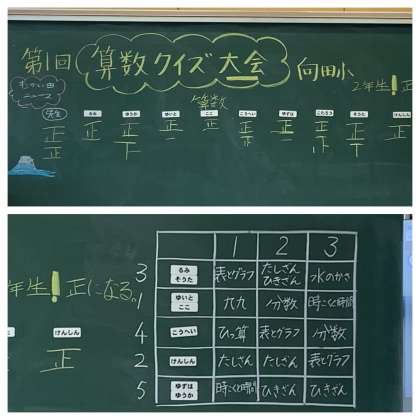 第1回 算数クイズ大会 向田小
2年生!正
算数
先生 るみ ゆうか ゆいと ここ こうへい ゆずは こたろう そうた けんしん
正 正 正 正 正 正 正 正 正 正
正 正 正
年生!正になる。
けんしん
正
1 2 3
3 るみ そうた 表とグラフ たしざん ひきざん 水のかさ
1 ゆいと ここ 九九 分数 時こくと時間
4 こうへい ひっ算 表とグラフ 分数
2 けんしん たしざん たしざん 表とグラフ
5 ゆずは ゆうか 時こくと時間 ひきざん ひきざん